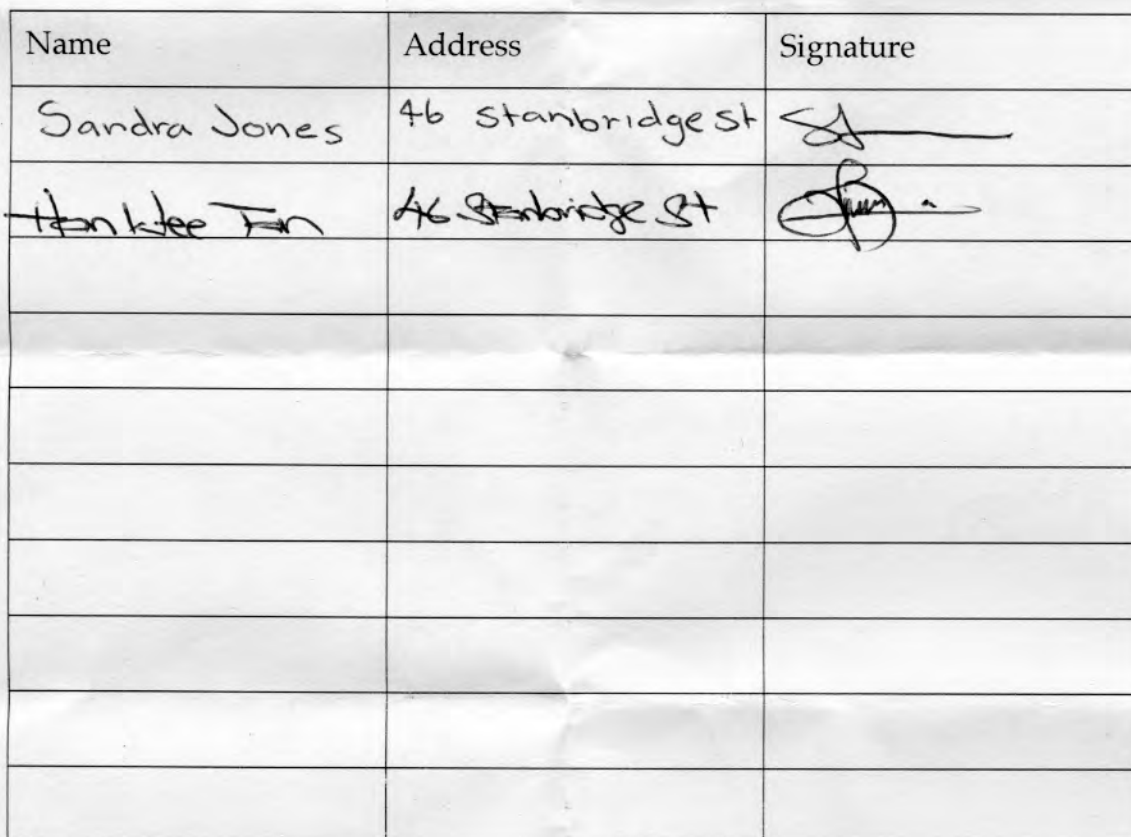 Name Address Signature
Sandra Jones 46 Stanbridge St
Tan 46 Stanbridge St